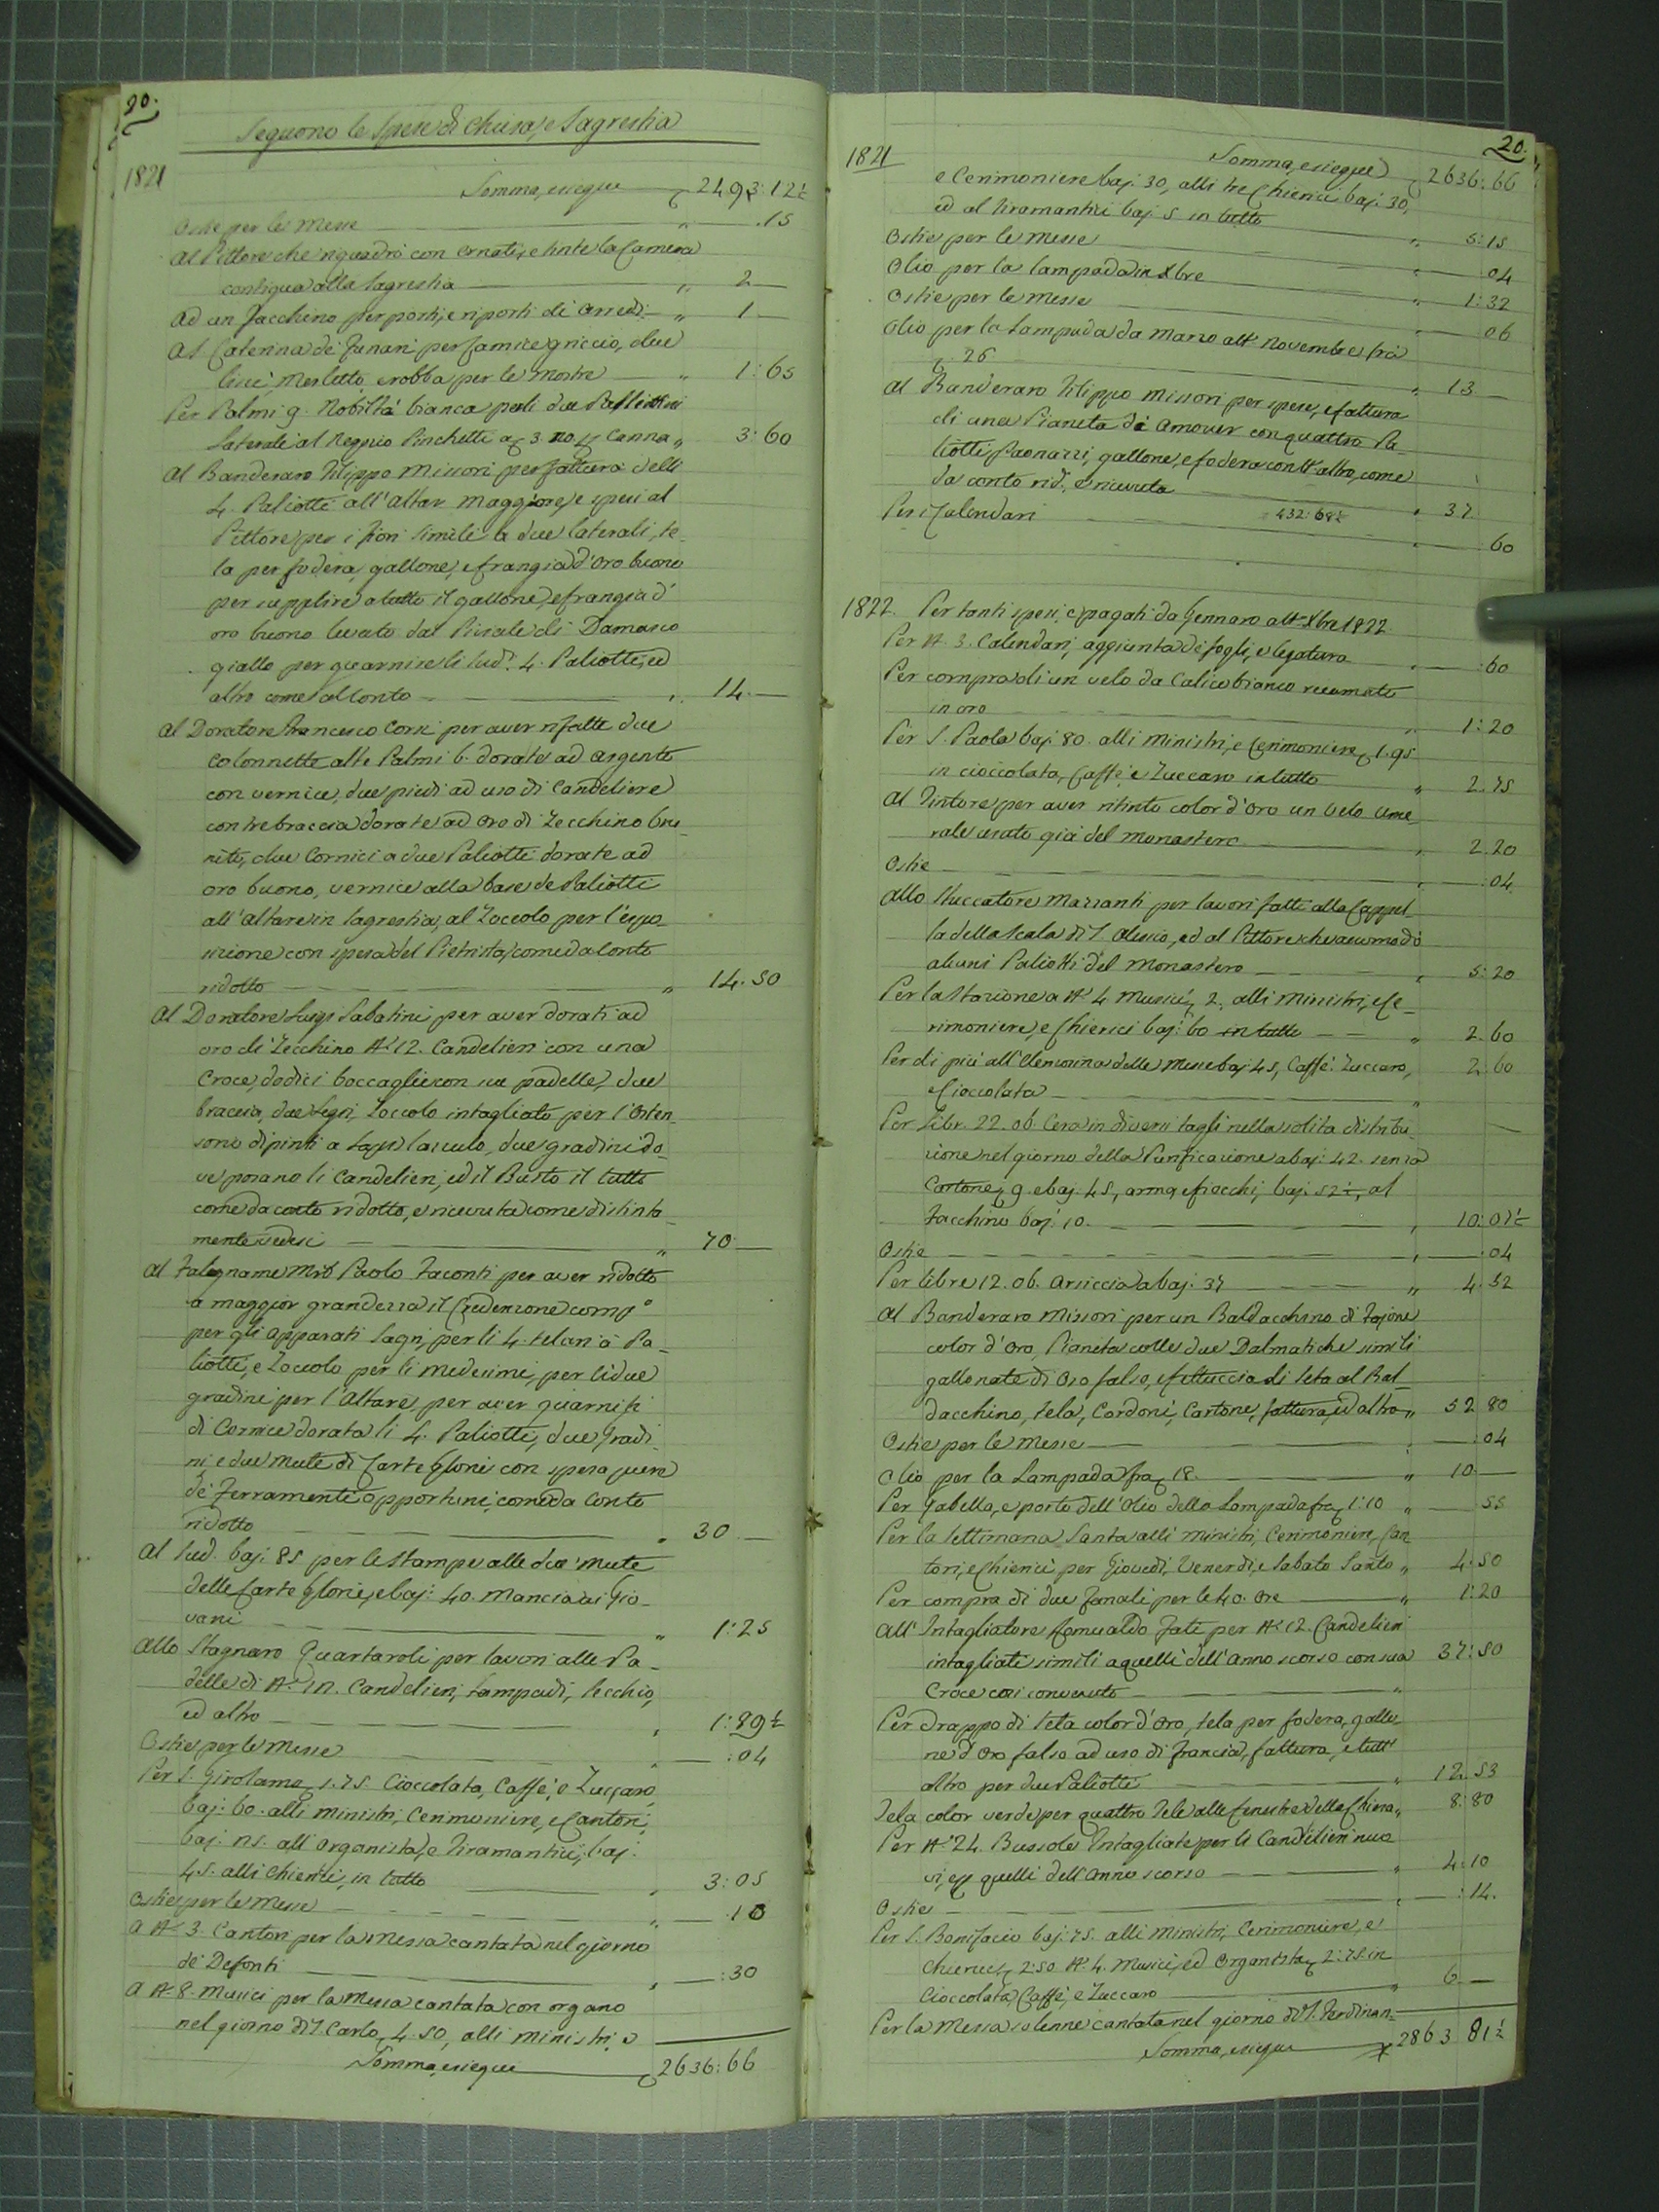 20.
Seguono le Spese di Chiesa, e Sagrestia
1821
Somma, e siegue 2493:12½
Ostie per le Messe " —.15
Al Pittore che riquadrò con ornati, e tinte la Camera
contigua alla Sagrestia " 2 —
Ad un Facchino per porti, e riporti di Arredi " 1 —
A S. Caterina de Funari per Camice griccio, due
lisci, Merletto, e robba per le mostre " 1:65
Per Palmi 9. Nobiltà bianca per li due Palliottini
laterali al Neggio Pinchetti a 3. 20 Canna " 3:60
Al Banderaro Filippo Missori per fattura delli
4. Paliotti all'Altar Maggiore, e spesi al
Pittore per i fiori simili a due laterali, te-
la per fodera, gallone, e frangia d'Oro buono
per supplire a tutto il gallone, e frangia d'
oro buono levato dal Piviale di Damasco
giallo per guarnire li sud.i 4. Paliotti, ed
altro come al Conto " 14.—
Al Doratore Francesco Corsi per aver rifatte due
Colonnette alte Palmi 6. dorate ad argento
con vernice, due piedi ad uso di Candeliere
con tre braccia dorate ad oro di Zecchino bru-
niti, due Cornici a due Paliotti dorate ad
oro buono, vernice alla base de Paliotti
all'Altare in Sagrestia, al Zoccolo per l'espo-
sizione con spesa del Pietrista, come da Conto
ridotto " 14.50
Al Doratore Luigi Sabatini per aver dorati ad
oro di Zecchino N.° 12. Candelieri con una
Croce, dodici boccaglie con sue padelle, due
braccia, due Legii, Zoccolo intagliato per l'Osten-
sorio dipinti a Lapislazulo, due gradini do-
ve posano li Candelieri, ed il Busto il tutto
come da conto ridotto, e ricevuta come distinta-
mente vedesi " 70 —
Al Falegname Mro Paolo Faconti per aver ridotto
a maggior grandezza il Credenzone comp.o
per gli apparati Sagri, per li 4. telari a Pa-
liotti, e Zoccolo per li medesimi, per li due
gradini per l'Altare, per aver guarniti
di Cornice dorata li 4. Paliotti, due Gradi-
ni e due Mute di Carte Glorie con spesa pure
de Ferramenti opportuni, come da Conto
ridotto " 30 —
Al Sud. baj: 85 per le Stampe alle due Mute
delle Carte Glorie, e baj: 40. Mancia ai Gio-
vani " 1:25
Allo Stagnaro Quartaroli per lavori alle Pa-
delle di N.° 12. Candelieri, Lampadi, Secchio,
ed altro " 1:89½
Ostie per le Messe " —:04
Per S. Girolamo 1.75. Cioccolata, Caffè, e Zuccaro,
baj: 60. alli Ministri, Cerimoniere, e Cantori,
baj. 25. all'Organista, e Tiramantici, baj:
45. alli Chierici, in tutto " 3:05
Ostie per le Messe " —.10
A N.° 3. Cantori per la Messa cantata nel giorno
de' Defonti " —:30
A N.° 8. Musici per la Messa cantata con organo
nel giorno di S. Carlo 4.50, alli Ministri, e
Somma, e siegue 2636:66
20.
1821
Somma, e siegue 2636:66
e Cerimoniere baj. 30, alli tre Chierici baj: 30,
ed al Tiramantici baj. 5 in tutto " 5:15
Ostie per le Messe " —:04
Olio per la Lampada in Xbre " 1:32
Ostie per le Messe " —:06
Olio per la Lampada da Marzo a tt.o Novembre fra
26 " 13.—
Al Banderaro Filippo Missori per spese, e fattura
di una Pianeta di Amouer con quattro Pa-
liotti Paonazzi, gallone, e fodera con tt'altro, come
da conto rid., e ricevuta " 37
432:68½
Per i Calendari " —:60
1822. Per tanti spesi, e pagati da Gennaro a tt.o Xbre 1822.
Per N. 3. Calendari, aggiunta de fogli, e legatura " —:60
Per compra di un velo da Calice bianco recamato
in oro " 1:20
Per S. Paola baj. 80. alli Ministri, e Cerimoniere, 1.95
in cioccolata, Caffè, e Zuccaro in tutto " 2.75
Al Tintore per aver ritinto color d'Oro un Velo Ume-
rale usato già del Monastero " 2.20
Ostie " —:04
Allo Stuccatore Mazzanti per lavori fatti alla Cappel-
la della Scala di S. Alessio, ed al Pittore che accomodò
alcuni Paliotti del Monastero " 5:20
Per la Stazione a N.° 4 Musici 2. alli Ministri, Ce-
rimoniere, e Chierici baj: 60 in tutto " 2.60
Per di più all'Elemosina delle Messe baj 45, Caffè: Zuccaro, 2:60
e Cioccolata "
Per Libr. 22.06. Cera in diversi tagli nella solita distribu-
zione nel giorno della Purificazione a baj: 42. senza
Cartone, 9 e baj. 45, arma, e fiocchi, baj. 52½, al
Facchino baj. 10. " 10:07½
Ostie " —:04
Per libre 12.06. Arsiccia a baj: 37 " 4.52
Al Banderaro Missori per un Baldacchino di Fajone
color d'Oro, Pianeta colle due Dalmatiche simili
gallonate di Oro falso, e fettuccia di Seta al Bal-
dacchino, tela, Cordoni, Cartone, fattura, ed altro " 52 80
Ostie per le Messe " —:04
Olio per la Lampada fra 18. " 10.—
Per Gabella, e porto dell'Olio della Lampada fra 1:10 " — 55
Per la Settimana Santa alli Ministri, Cerimoniere, Can-
tori, e Chierici per Giovedì, Venerdì, e Sabato Santo " 4:50
Per compra di due Fanali per le 40. Ore " 1:20
All'Intagliatore Romualdo Fati per N.° 12. Candelieri
intagliati simili a quelli dell'Anno scorso con sua 37:50
Croce così convenuto "
Per drappo di Seta color d'Oro, tela per fodera, gallo-
ne d'Oro falso ad uso di Francia, fattura, e tutt'
altro per due Paliotti " 12.53
Tela color verde per quattro Tele alle finestre della Chiesa " 8:80
Per N.° 24. Bussole Intagliate per li Candelieri nuo-
vi, e quelli dell'Anno scorso " 4:10
Ostie " —:14.
Per S. Bonifacio baj: 75. alli Ministri, Cerimoniere, e
Chierici, 2:50 N.° 4. Musici, ed Organista, 2:75. in
Cioccolata, Caffè, e Zuccaro " 6 —
Per la Messa solenne cantata nel giorno di S. Ferdinan-
Somma, e siegue 2863 81½